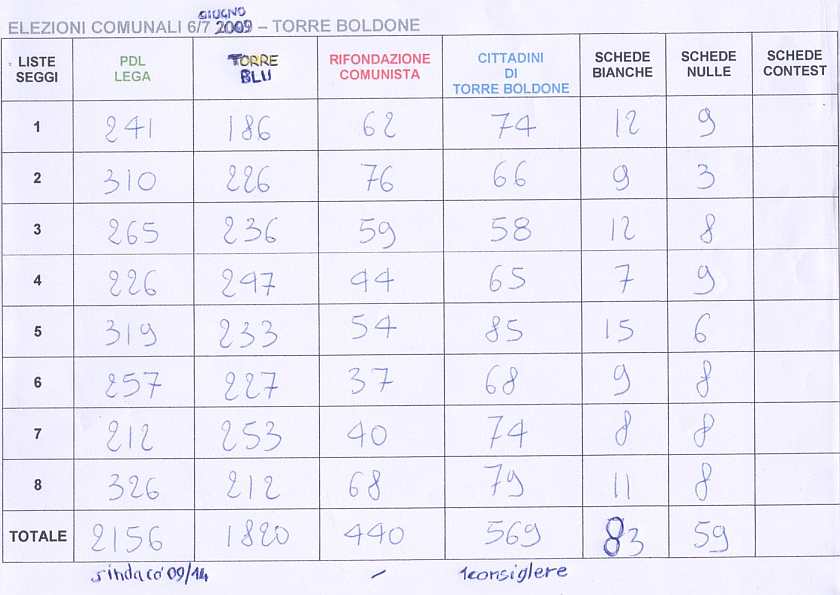 GIUGNO
ELEZIONI COMUNALI 6/7 2009 – TORRE BOLDONE
LISTE SEGGI PDL LEGA TORRE BLU RIFONDAZIONE COMUNISTA CITTADINI DI TORRE BOLDONE SCHEDE BIANCHE SCHEDE NULLE SCHEDE CONTEST
1 241 186 62 74 12 9
2 310 226 76 66 9 3
3 265 236 59 58 12 8
4 226 247 44 65 7 9
5 319 233 54 85 15 6
6 257 227 37 68 9 8
7 212 253 40 74 8 8
8 326 212 68 79 11 8
TOTALE 2156 1820 440 569 83 59
sindaco 09/14 – 1consiglere